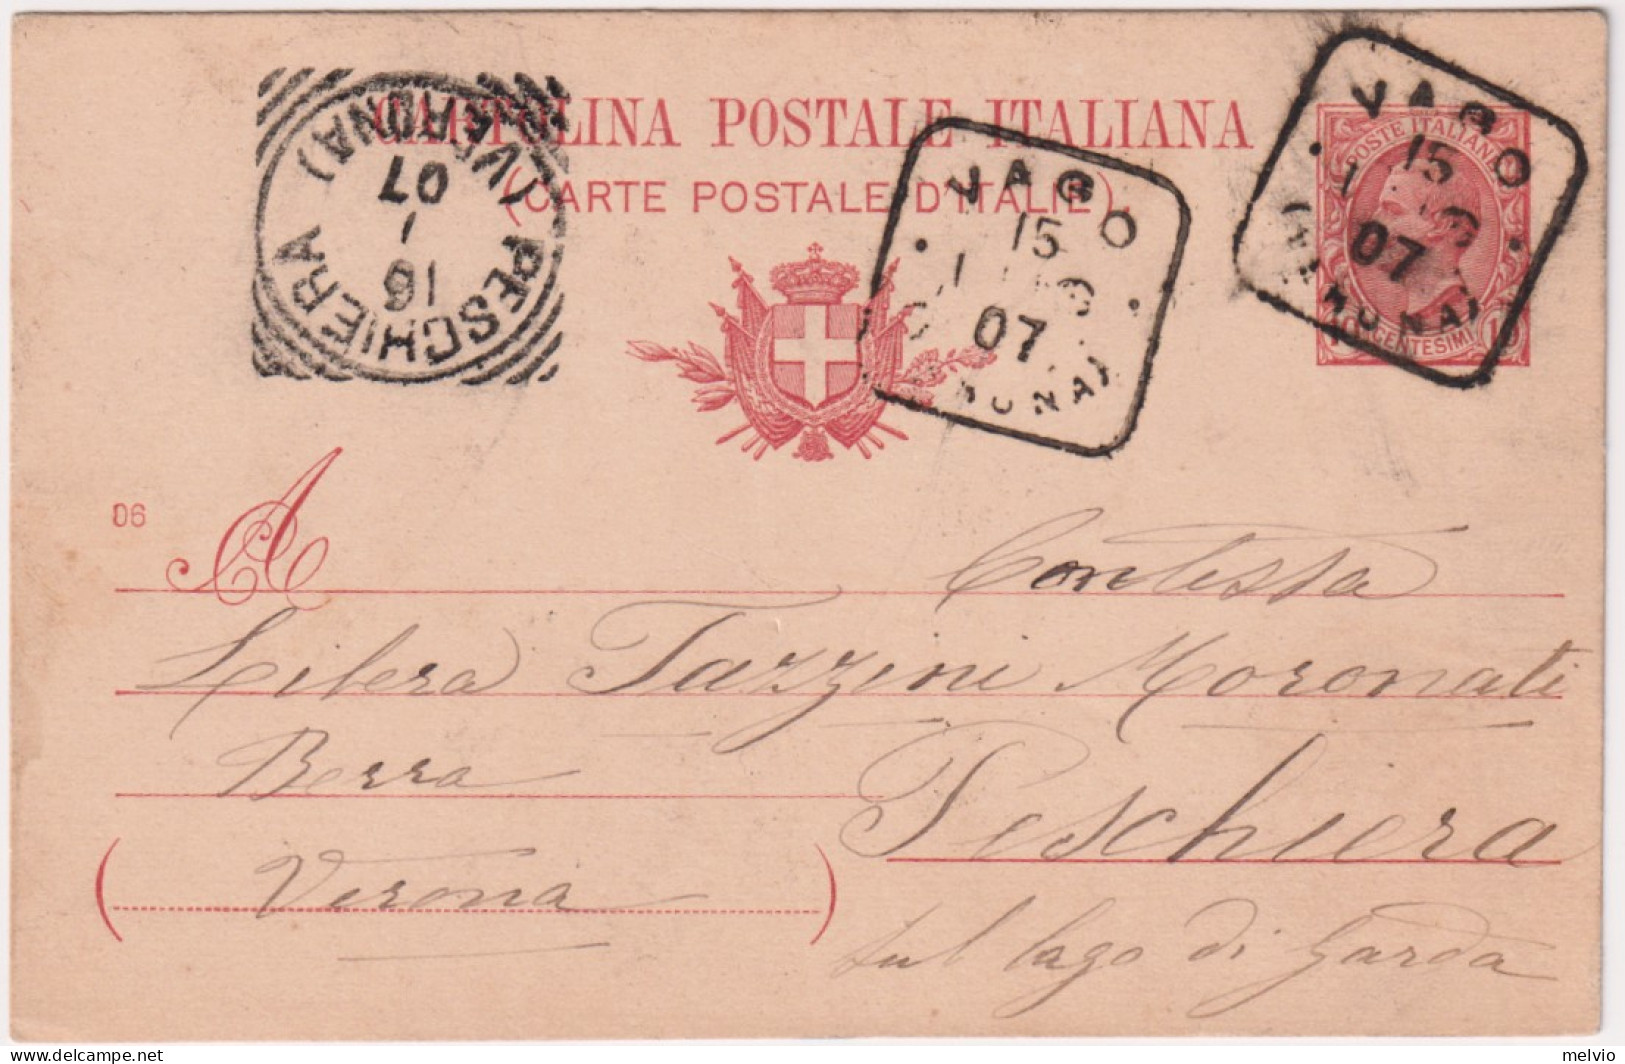 CARTOLINA POSTALE ITALIANA
(CARTE POSTALE D'ITALIE).
PESCHIERA
(VERONA)
16
1
07
VAGO
15
1
07
(VERONA)
VAGO
15
1
07
(VERONA)
POSTE ITALIANE
10 CENTESIMI 10
06
A Contessa
Libera Tazzini Moronati
Berra
Peschiera
(Verona)
sul lago di Garda
melvio